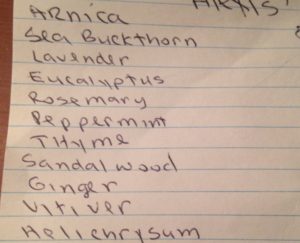 Arnica
Sea Buckthorn
Lavender
Eucalyptus
Rosemary
Peppermint
Thyme
Sandalwood
Ginger
Vitiver
Helichrysum